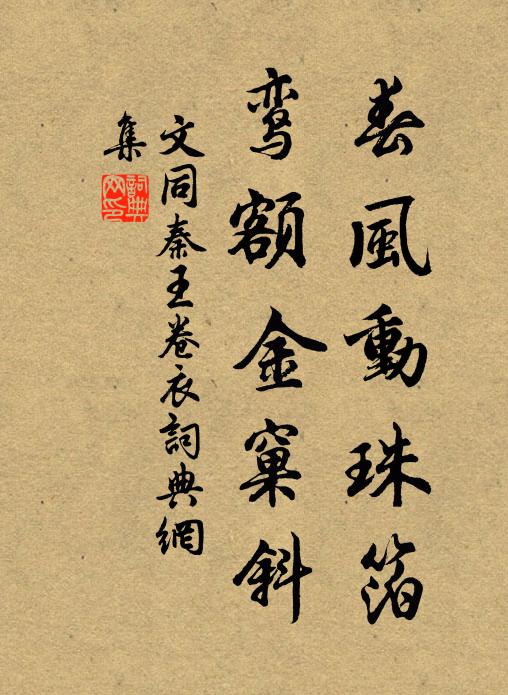 春風動珠箔
鸾額金窠斜
文同秦王卷衣詞典網
集
詞典網印